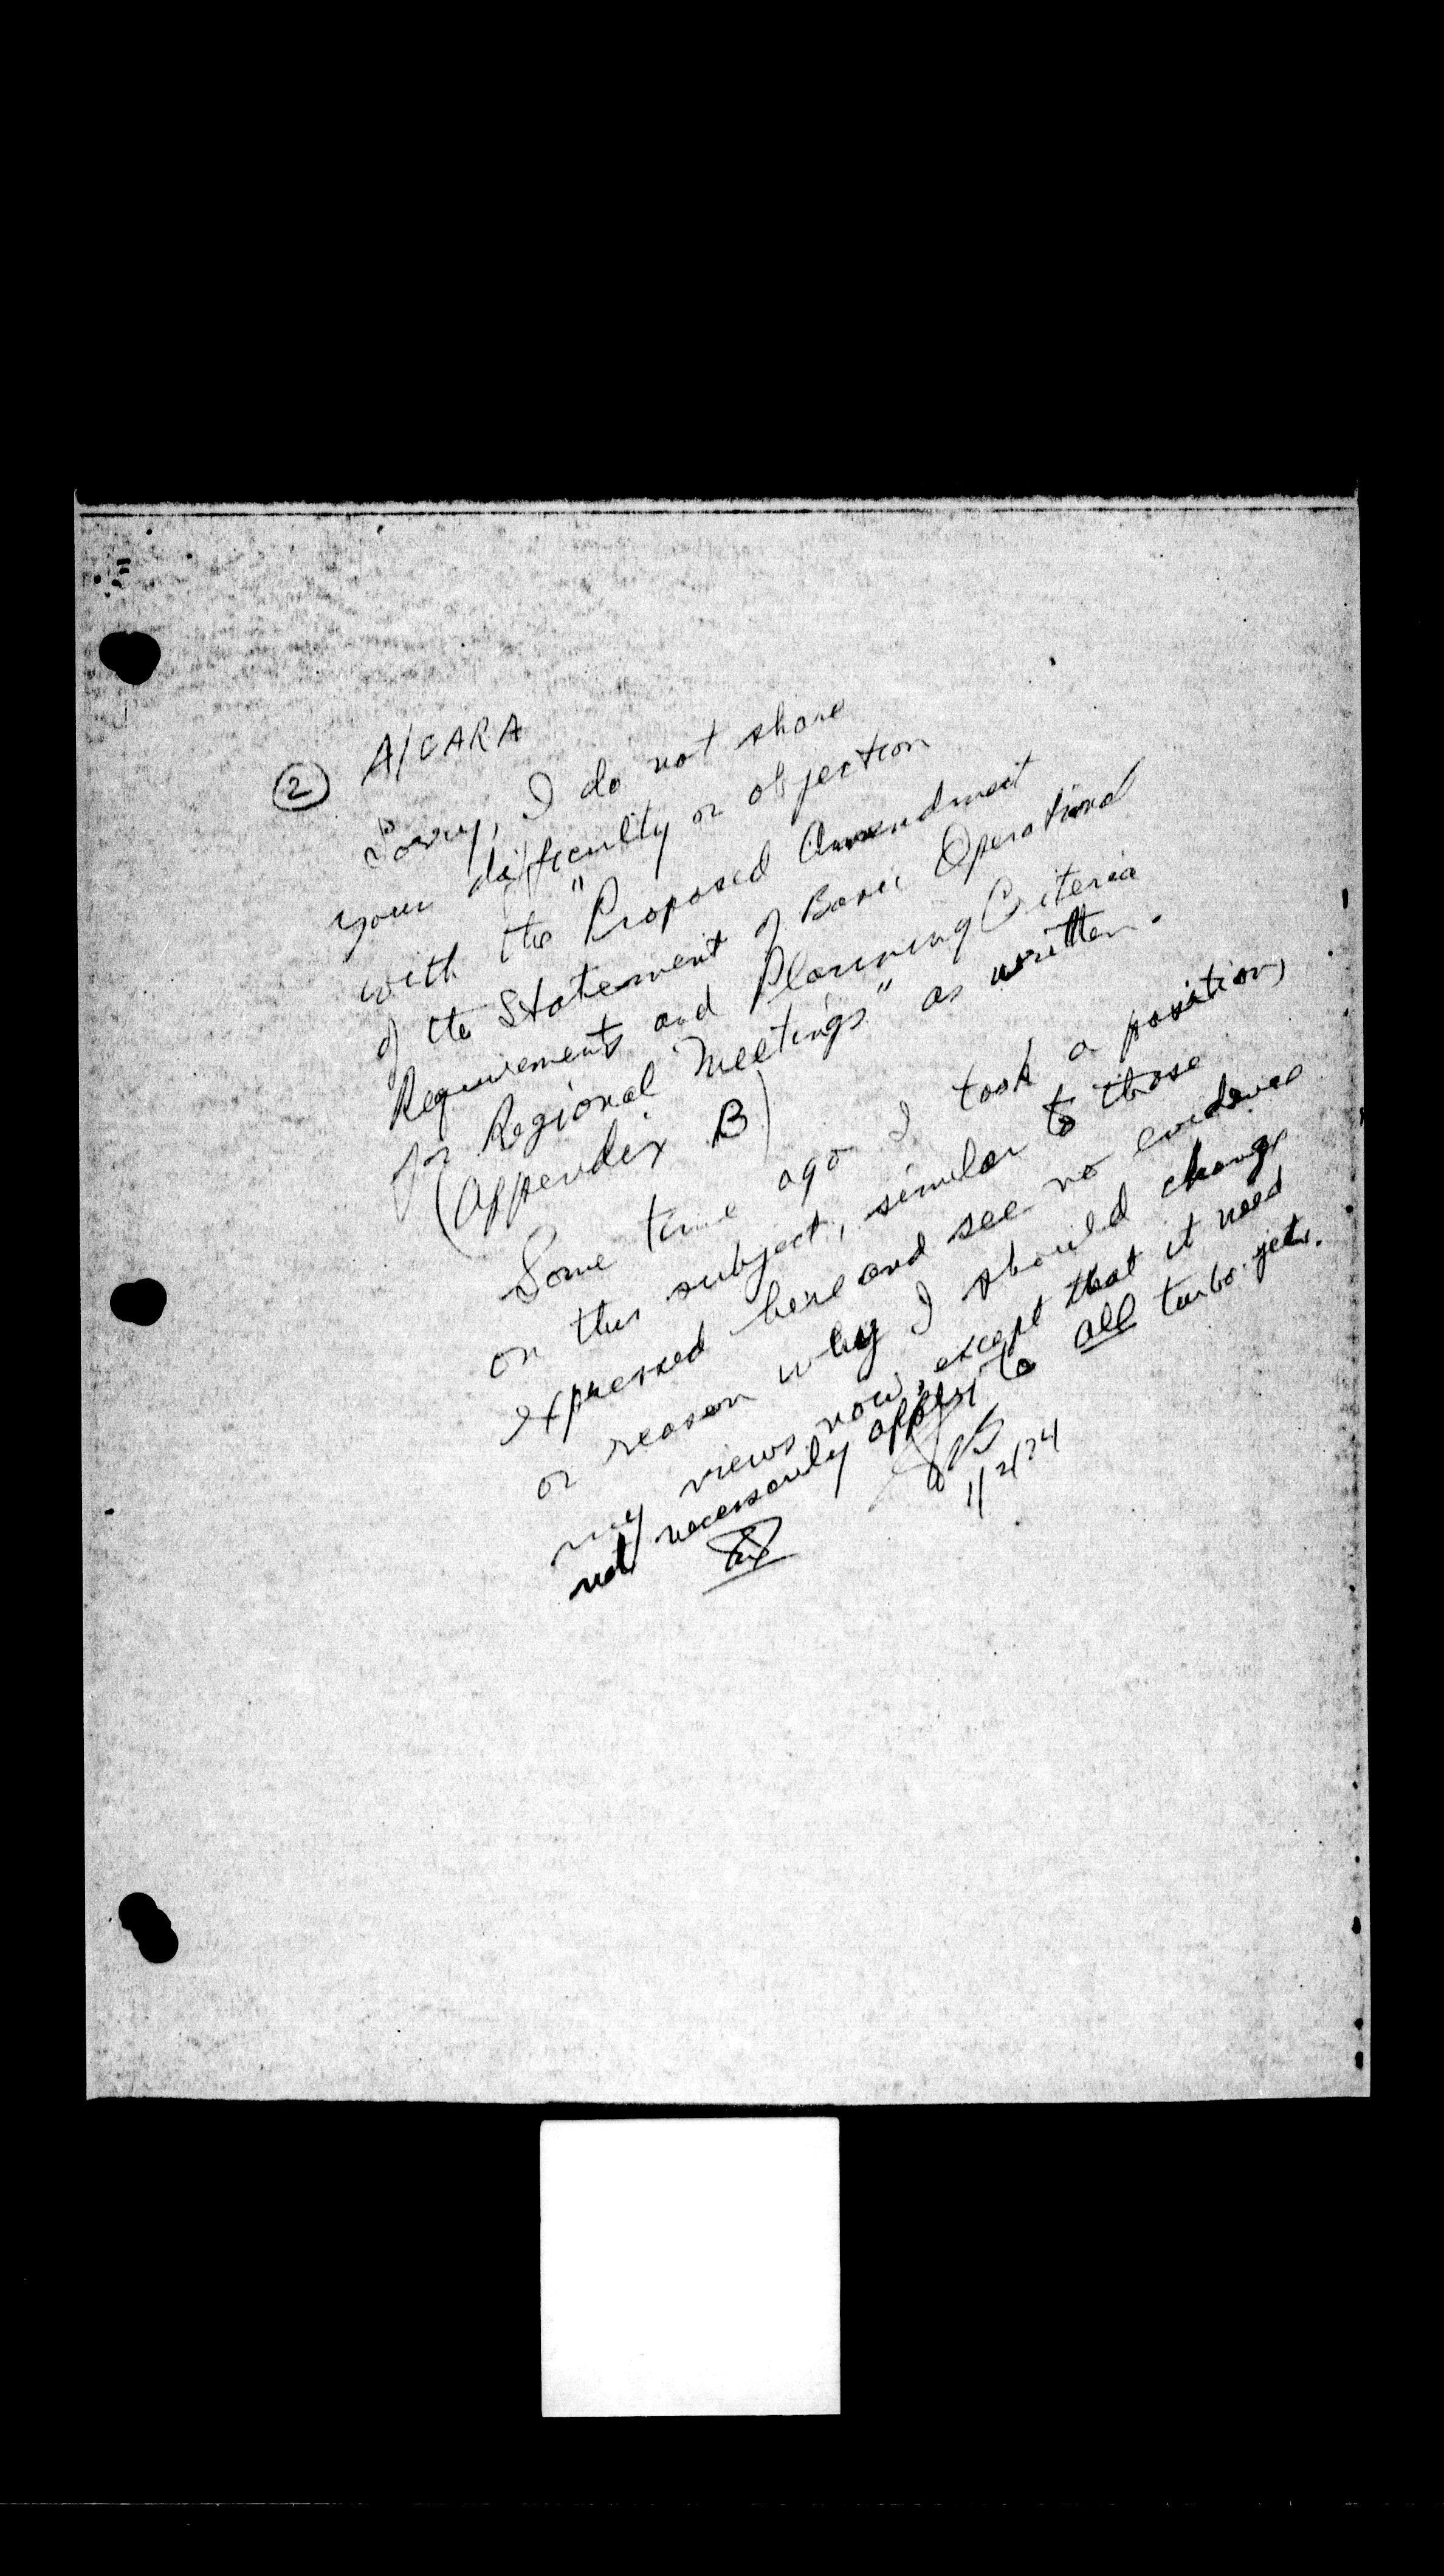 ② A/CARA
Sorry, I do not share
your difficulty or objection
with the "Proposed Amendment
of the Statement of Basic Operational
Requirements and Planning Criteria
for Regional Meetings" as written.
(Appendix B)
Some time ago I took a position,
on this subject, similar to those
expressed here and see no evidence
or reason why I should change
my views now, except that it need
not necessarily apply to all turbo-jets.
1/2/74